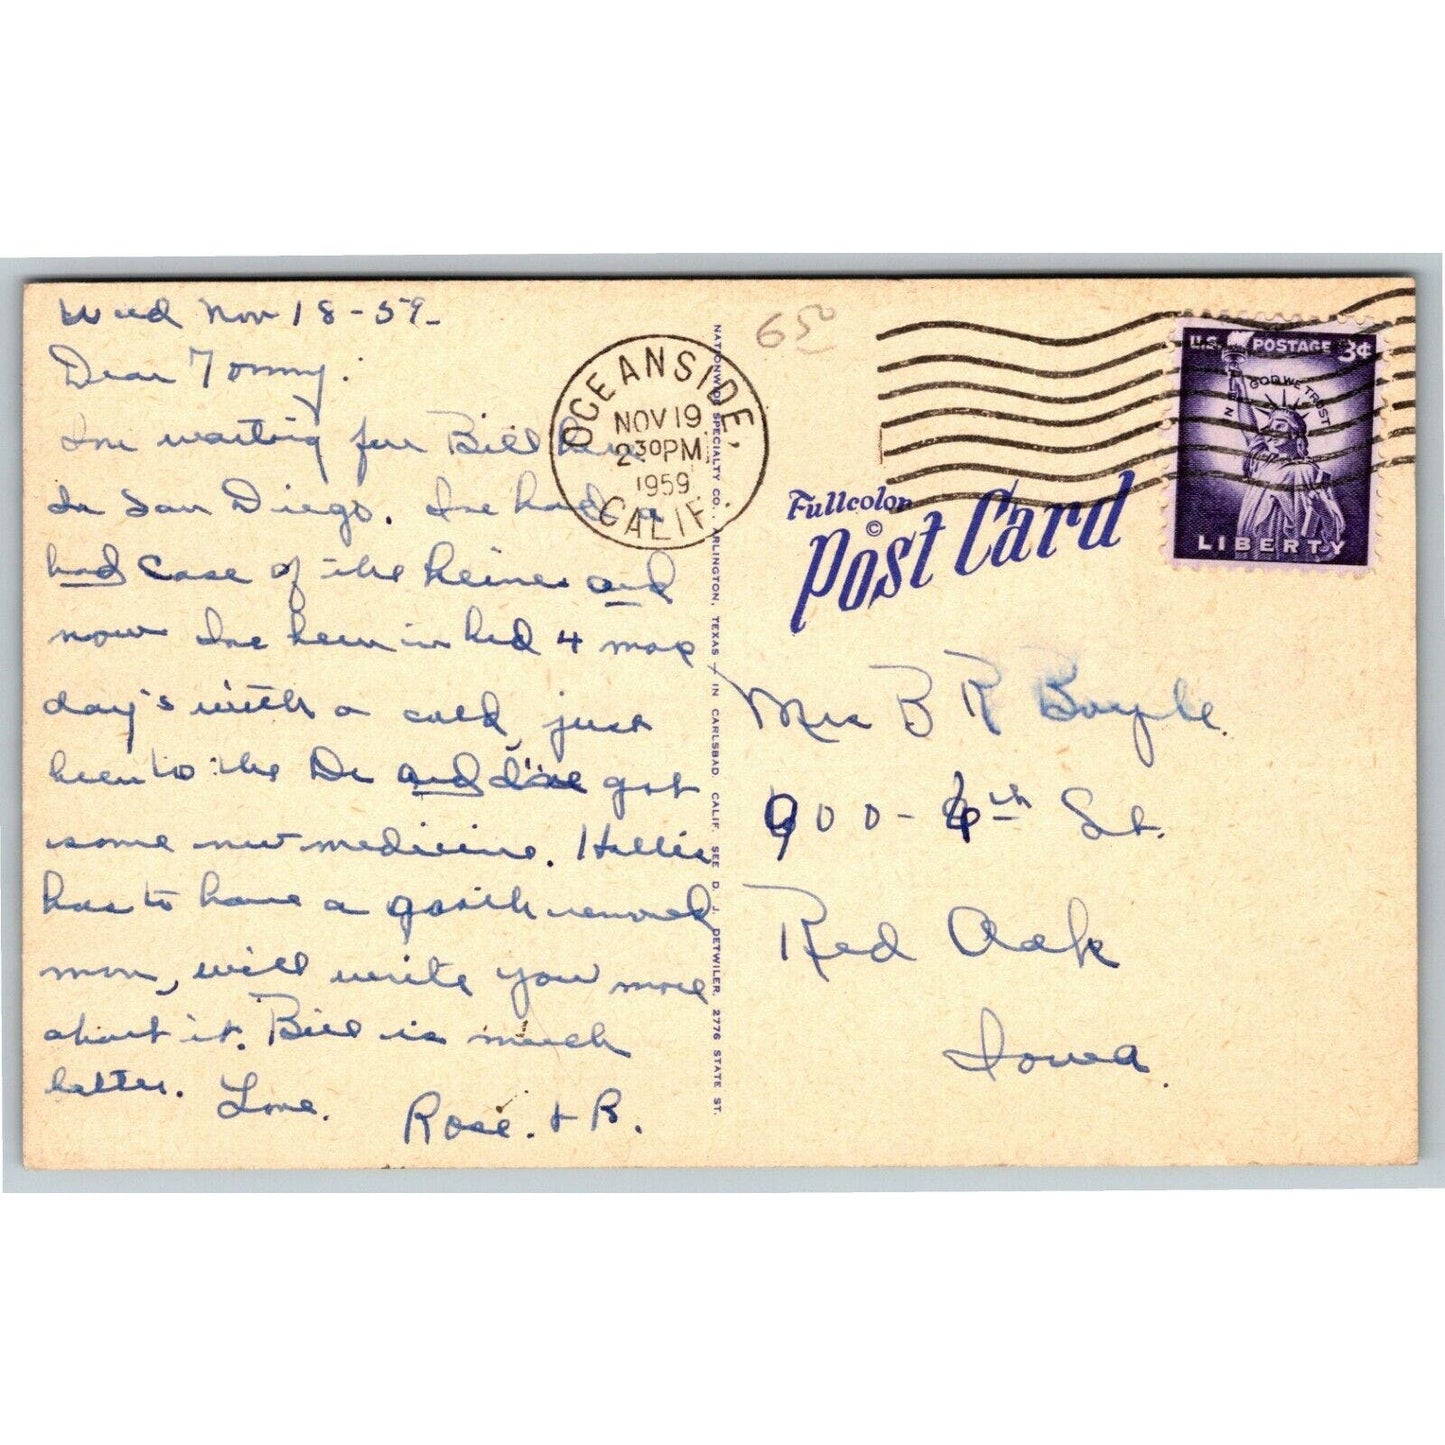 Wed Nov 18-59-
Dear Tommy:
I'm waiting for Bill here
In San Diego. I've had a
bad case of the and
now I've been in bed 4
day's with a cold, just
been to the Dr and I've got
some new medicine. Hallie
has to have a removed
mon, will write you more
about it. Bill is much
better. Love.
Rose. + B.
650
OCEANSIDE,
NOV 19
2 30 PM
1959
CALIF.
NATIONWIDE SPECIALTY CO., ARLINGTON, TEXAS / IN CARLSBAD, CALIF. SEE D. J. DETWILER, 2776 STATE ST.
U.S. POSTAGE 3¢
IN GOD WE TRUST
LIBERTY
Fullcolor
©
Post Card
Mrs B R Boyle.
900 - th St.
Red Oak
Iowa.